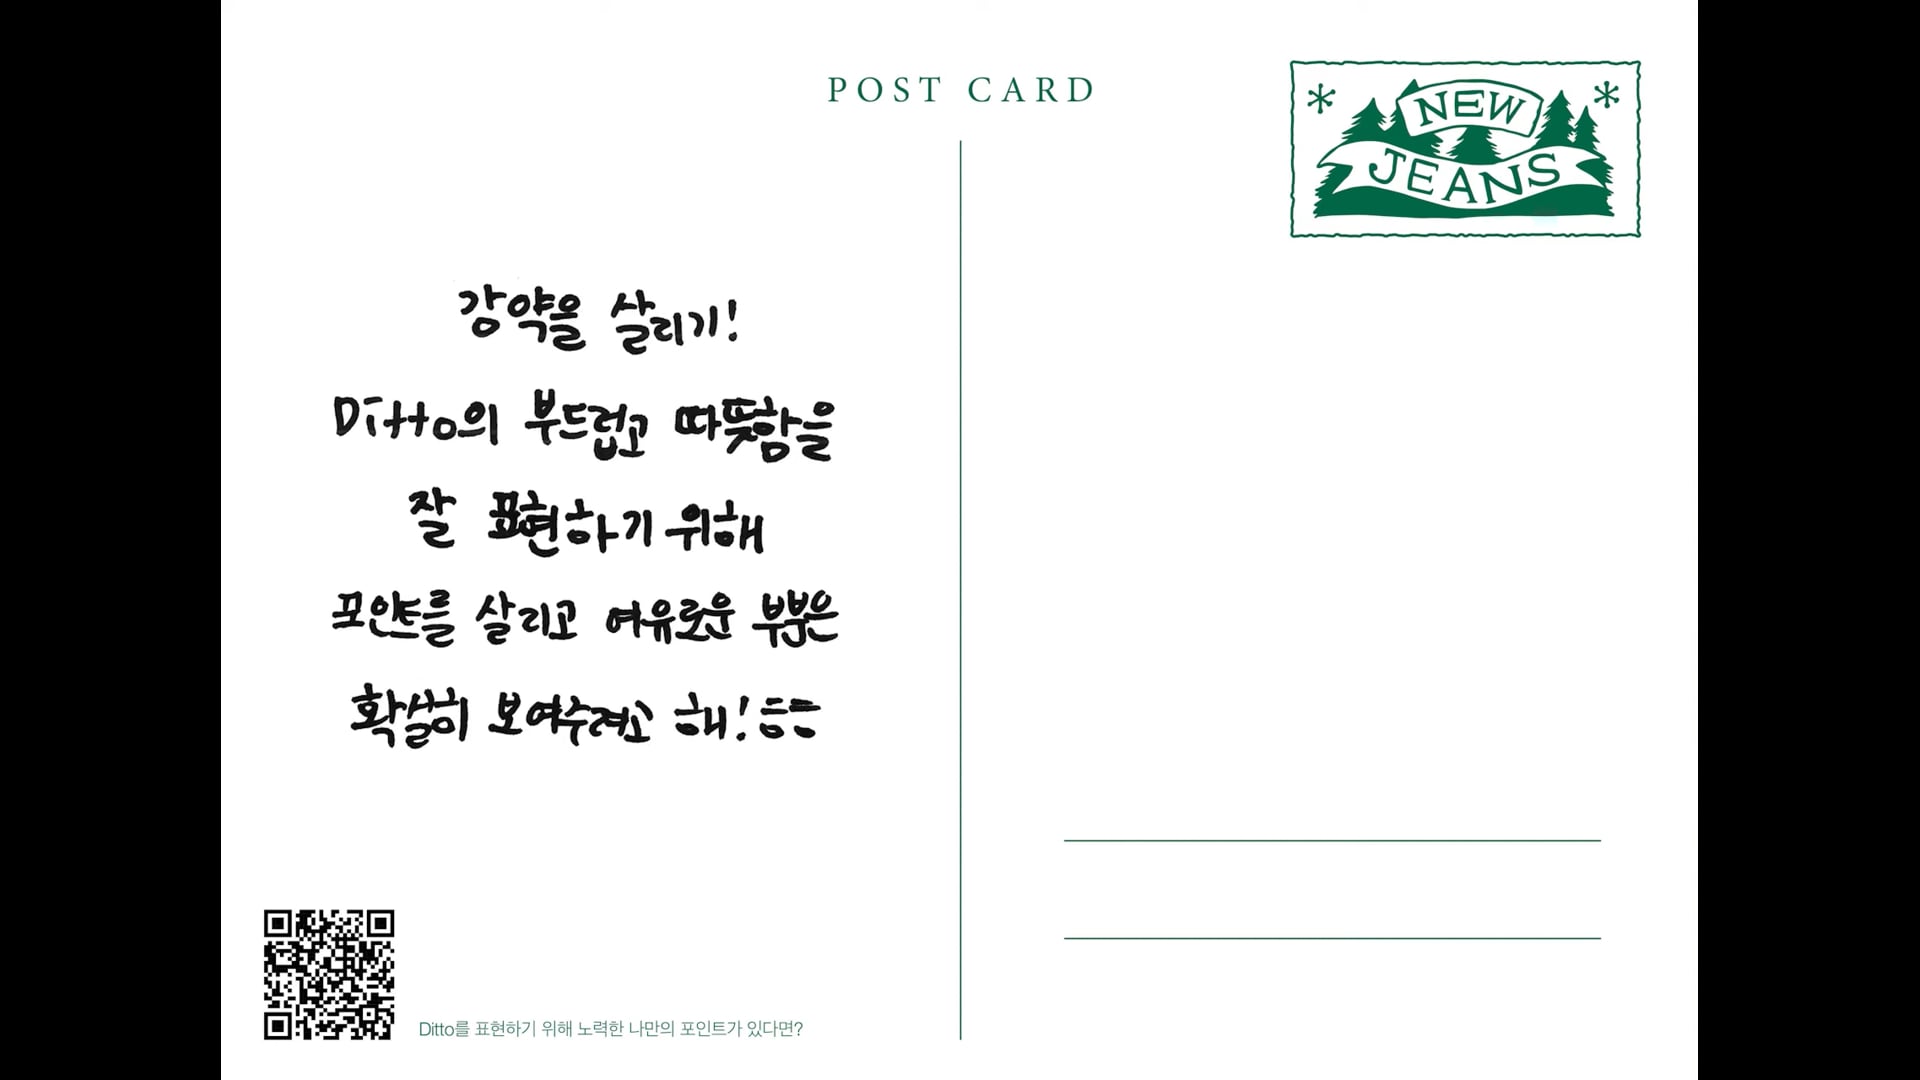 POST CARD
NEW
JEANS
강약을 살리기!
Ditto의 부드럽고 따뜻함을
잘 표현하기 위해
포인트를 살리고 여유로운 부분은
확실히 보여주려고 해! 흐흐
Ditto를 표현하기 위해 노력한 나만의 포인트가 있다면?